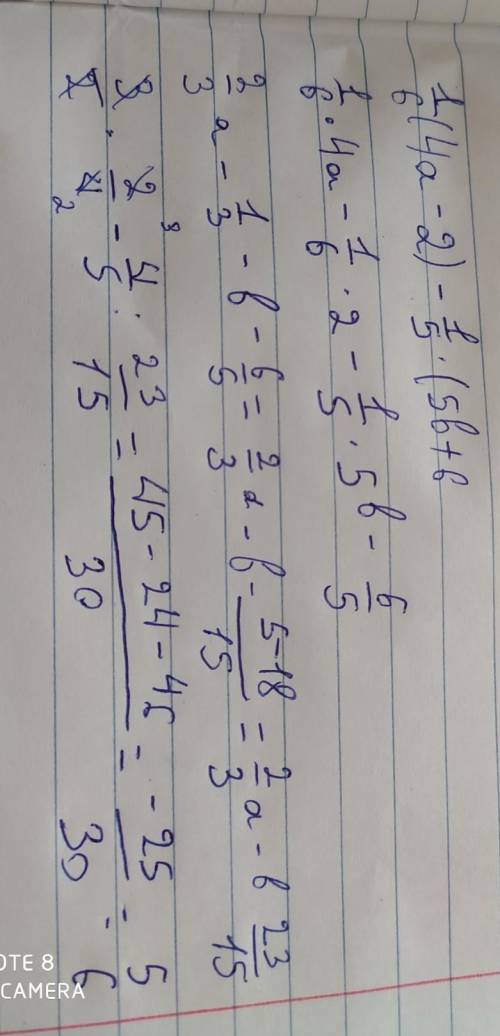 1/6(4a - 2) - 1/5 · (5b + 6
1/6 · 4a - 1/6 · 2 - 1/5 · 5b - 6/5
2/3 a - 1/3 - b - 6/5 = 2/3 a - b - 5-18/15 = 2/3 a - b 23/15
· 2/4 - 4/5 : 23/15 = 45 - 24 - 45/30 = - 25/30 = 5/6
OTE 8
CAMERA